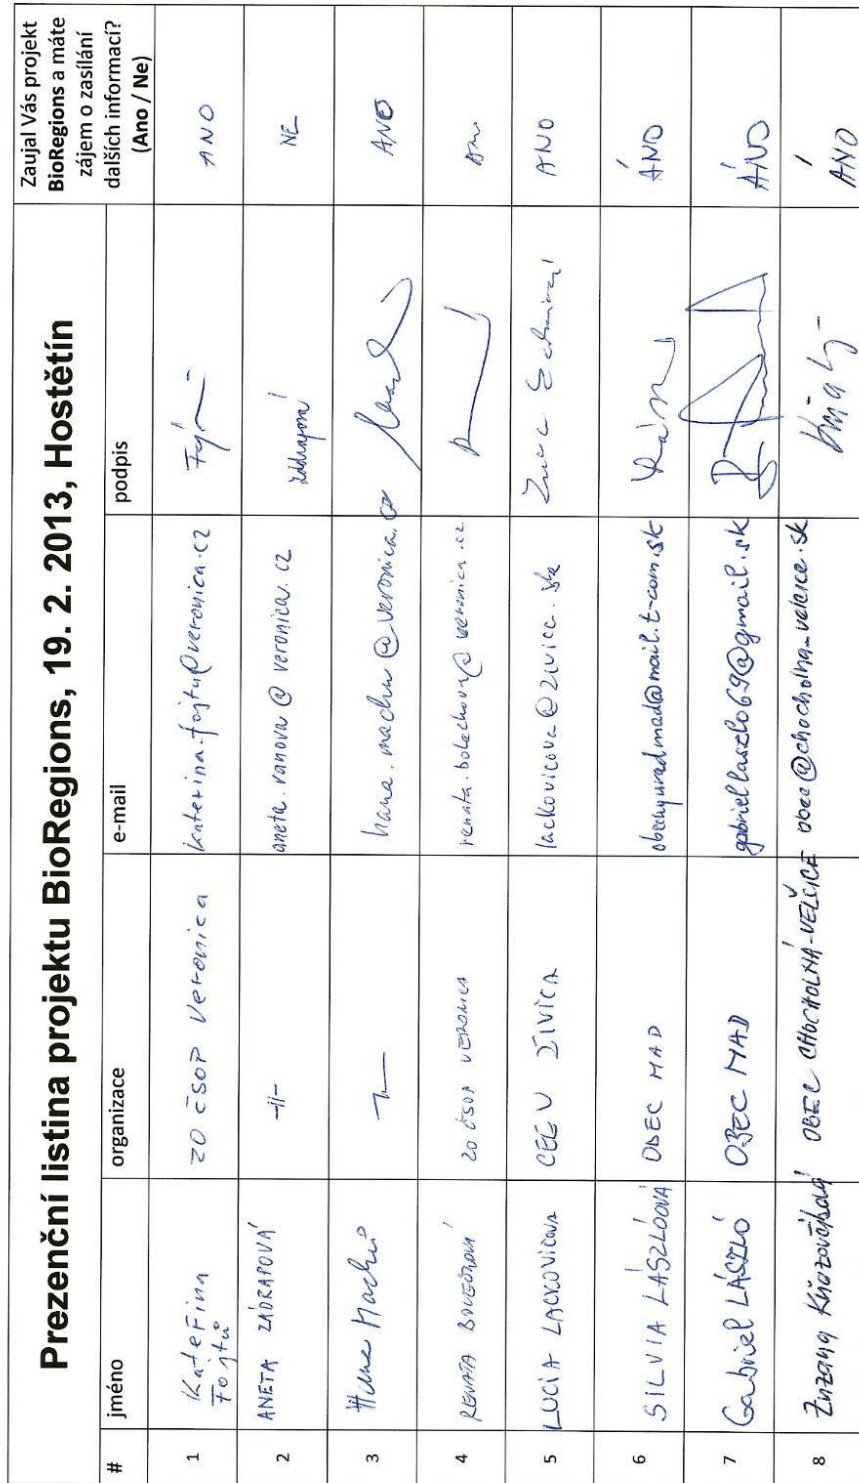 Prezenční listina projektu BioRegions, 19. 2. 2013, Hostětín
Zaujal Vás projekt
BioRegions a máte
zájem o zasílání
dalších informací?
(Ano / Ne)
# jméno organizace e-mail podpis
1 Kateřina Fojtů ZO ČSOP Veronica katerina.fojtu@veronica.cz ANO
2 ANETA ZÁDRAPOVÁ -||- aneta.vanova@veronica.cz Zádrapová NE
3 Hana Machů hana.machu@veronica.cz ANO
4 RENATA ZO ČSOP VERONICA Ano
5 LUCIA LACKOVIČOVÁ CEEV ŽIVICA lackovicova@zivica.sk ANO
6 SILVIA LÁSZLÓOVÁ OBEC MAD obecnyuradmad@mail.t-com.sk ÁNO
7 Gabriel LÁSZLÓ OBEC MAD gabriellaszlo69@gmail.sk ÁNO
8 Zuzana OBEC CHOCHOLNÁ-VELČICE obec@chocholna-velcice.sk ÁNO